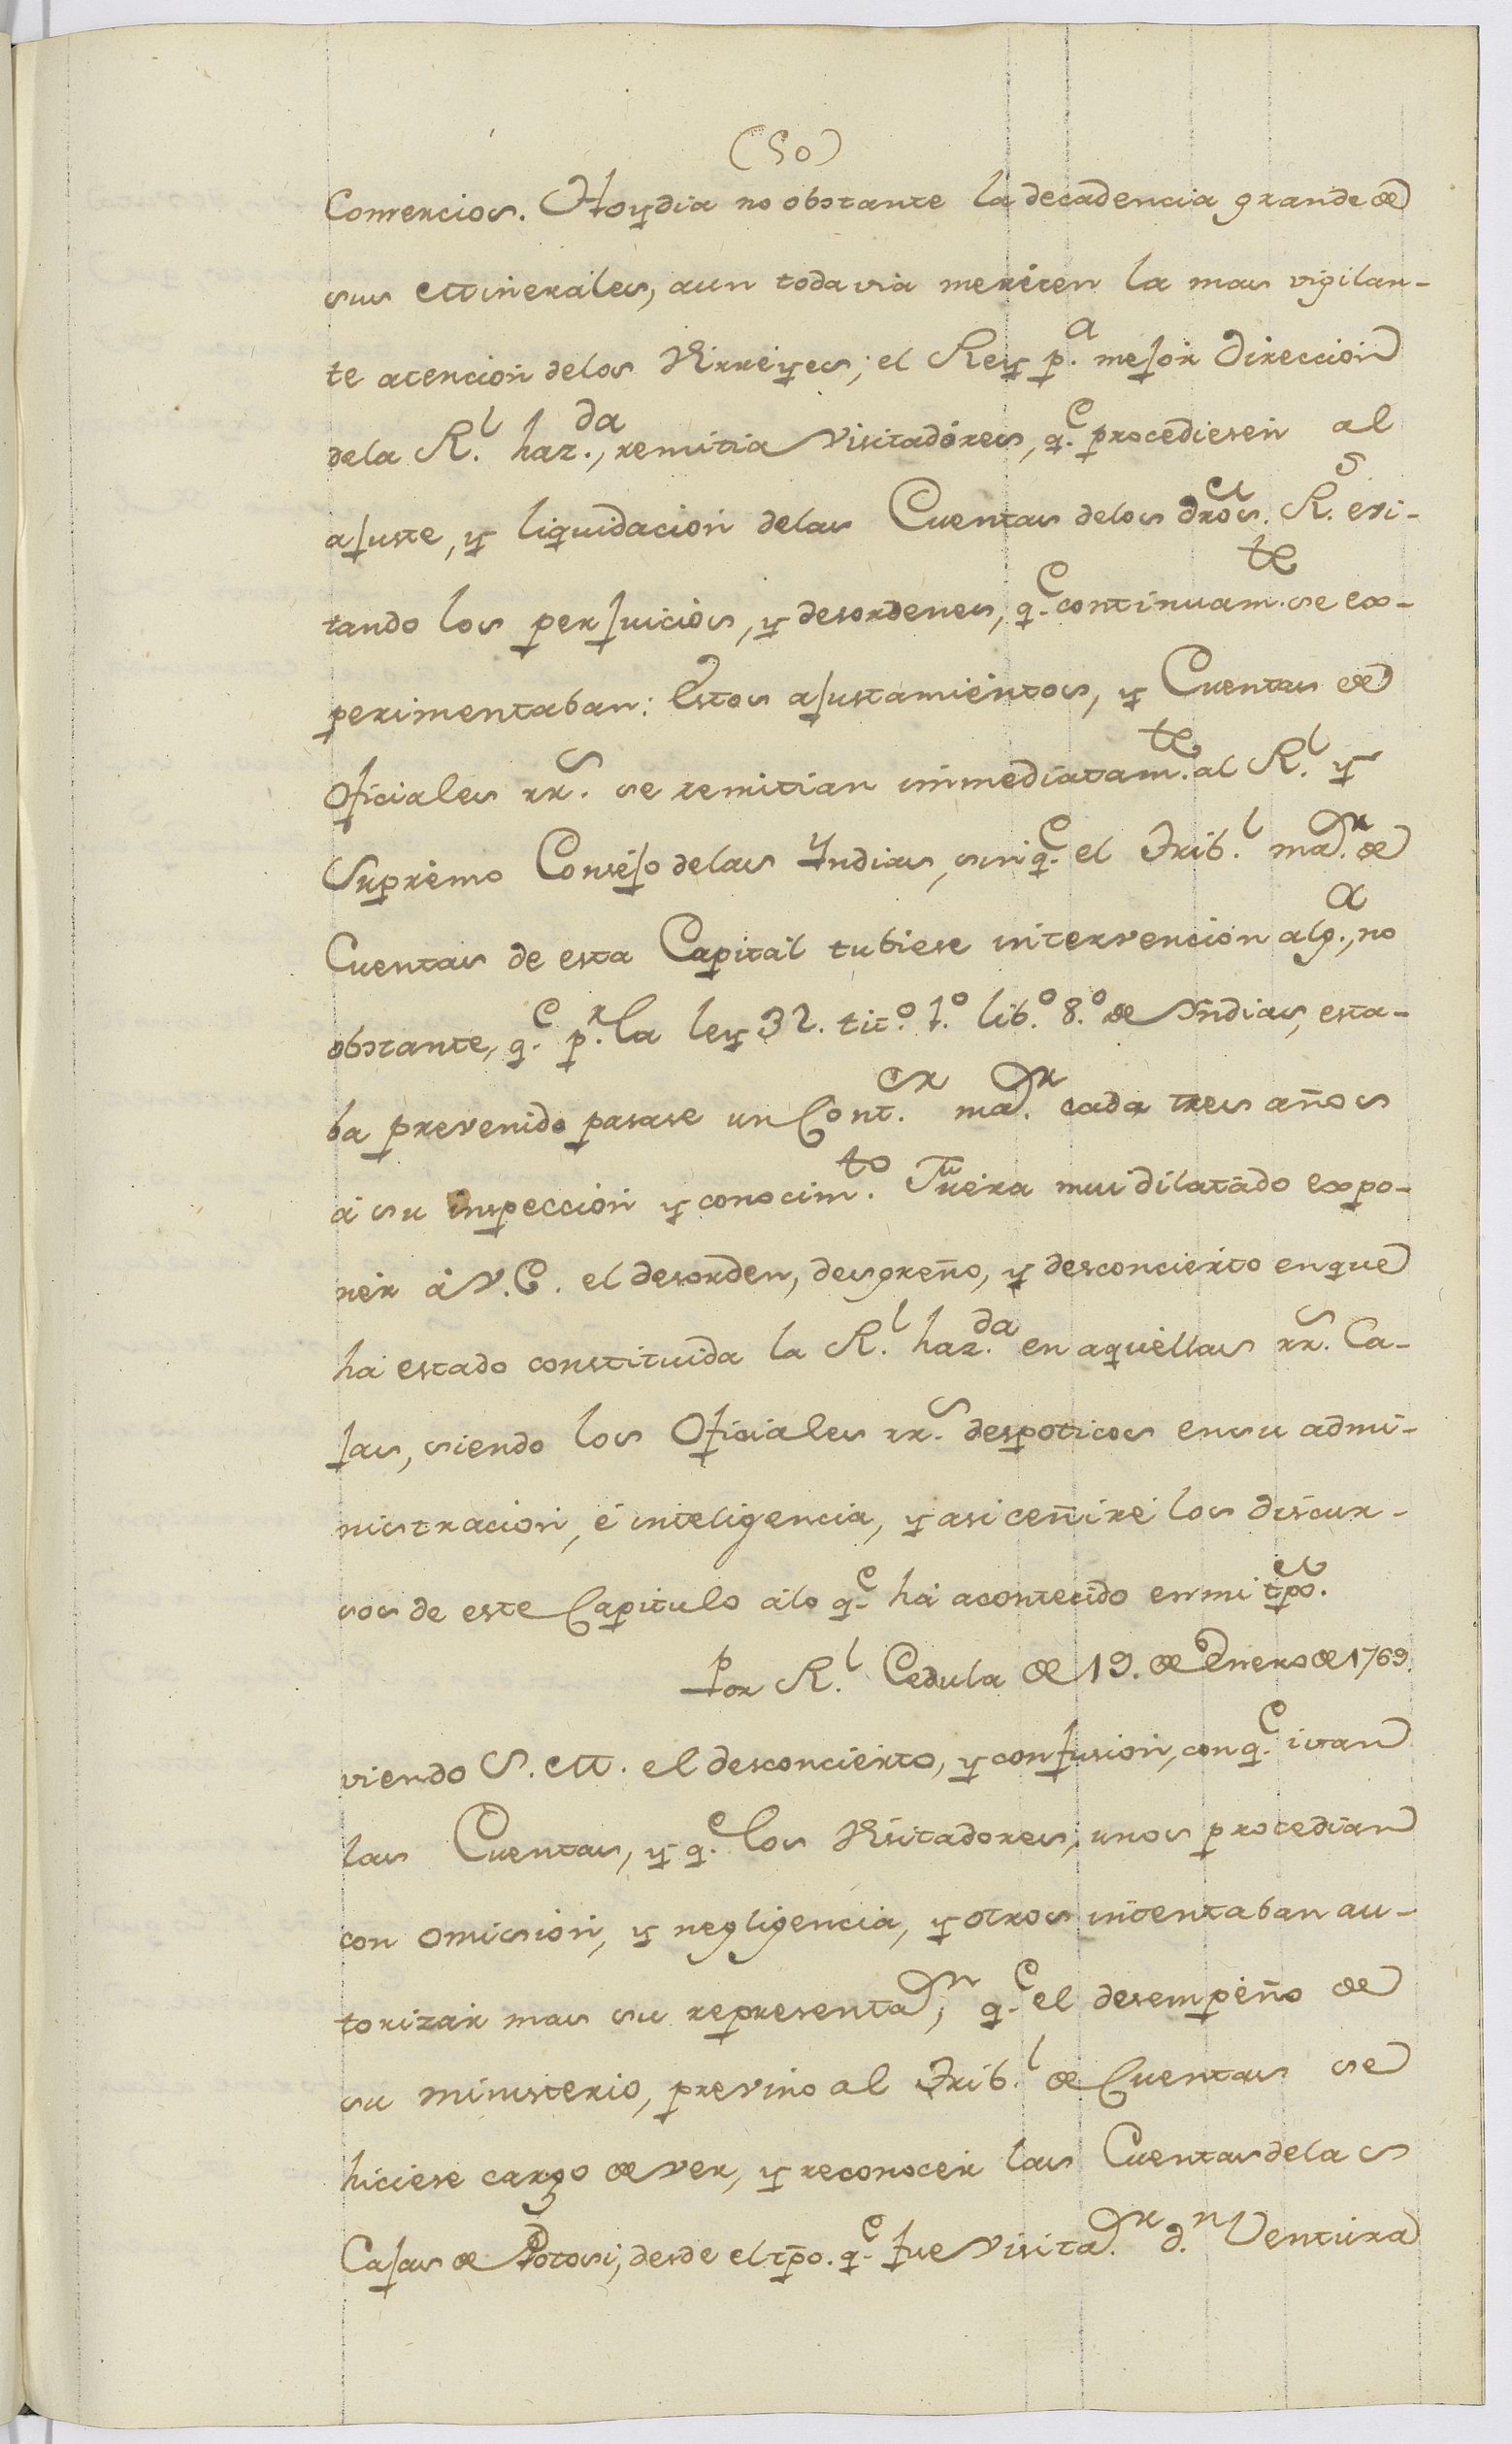 (50)
Comercios. Hoy dia no obstante la decadencia grande de
sus Minerales, aun toda via merecen la mas vigilan-
te atencion delos Virreyes; el Rey p.a mejor Direccion
dela R.l haz.da, remitia Visitadores, q.e procediesen al
ajuste, y liquidacion delas Cuentas delos dros. R.s evi-
tando los perjuicios, y desordenes, q.e continuam.te se ex-
perimentaban: Estos ajustamientos, y Cuentas de
Oficiales rr.s se remitian inmediatam.te al R.l y
Supremo Consejo delas Yndias, sin q.e el Trib.l ma.or de
Cuentas de esta Capital tubiese intervencion alg.a, no
obstante, q.e p.r la ley 32. tit.o 1.o lib.o 8.o de Yndias, esta-
ba prevenido pasase un Cont.or ma.or cada tres años
á su inspeccion y conocim.to Fuera mui dilatado expo-
ner á V.E. el desorden, desgreño, y desconcierto enque
ha estado constituida la R.l haz.da en aquellas rr.s Ca-
jas, siendo los Oficiales rr.s despoticos ensu admi-
nistracion, é inteligencia, y asi ceñiré los discur-
sos de este Capitulo álo q.e há acontecido en mi tpo.
Por R.l Cedula de 19. de Enero de 1769.
viendo S.M. el desconcierto, y confusion, con q.e ivan
las Cuentas, y q.e los Visitadores, unos procedian
con omision, y negligencia, y otros intentaban au-
torizar mas su representa.on, q.e el desempeño de
su ministerio, previno al Trib.l de Cuentas se
hiciese cargo de ver, y reconocer las Cuentas delas
Cajas de Potosi, desde el tpo. q.e fue Visita.or d.n Ventura